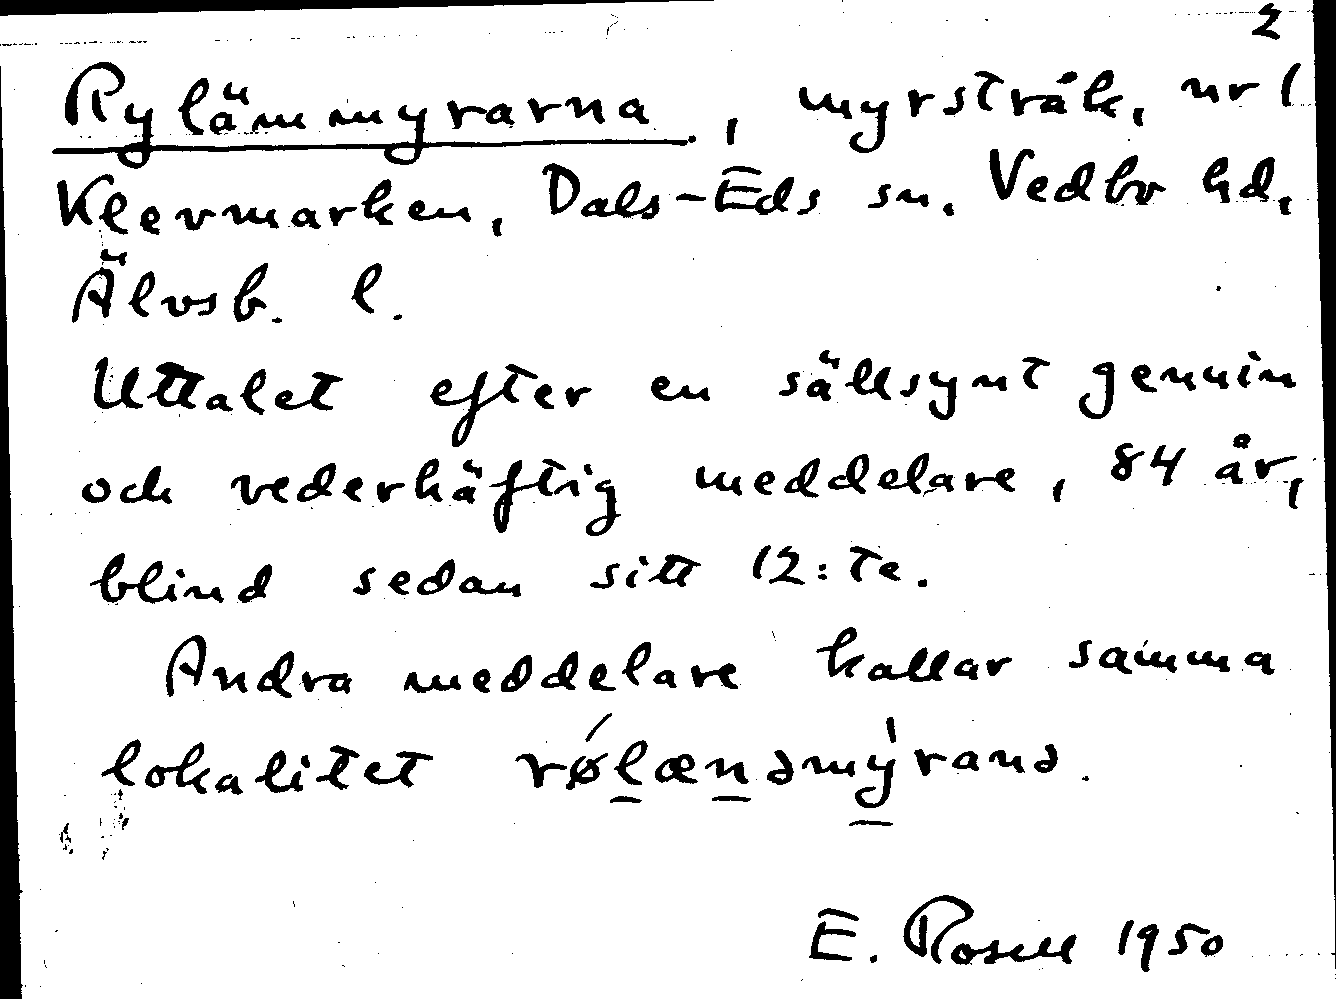 2
Rylämmyrarna, myrstråk, nr 1
Klevmarken, Dals-Eds sn. Vedbo hd,
Älvsb. l.
Uttalet efter en sällsynt genuin
och vederhäftig meddelare, 84 år,
blind sedan sitt 12:te.
Andra meddelare kallar samma
lokalitet rǿlænəmýranə.
E. Rosell 1950